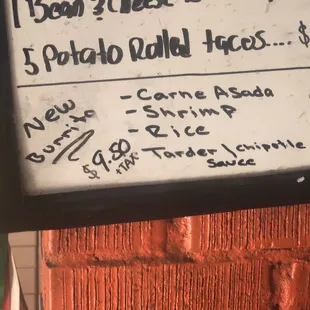 Bean & Cheese
5 Potato Rolled tacos.... $
New
Burrito
$9.50
+TAX
- Carne Asada
- Shrimp
- Rice
- Tarder \ chipotle
sauce